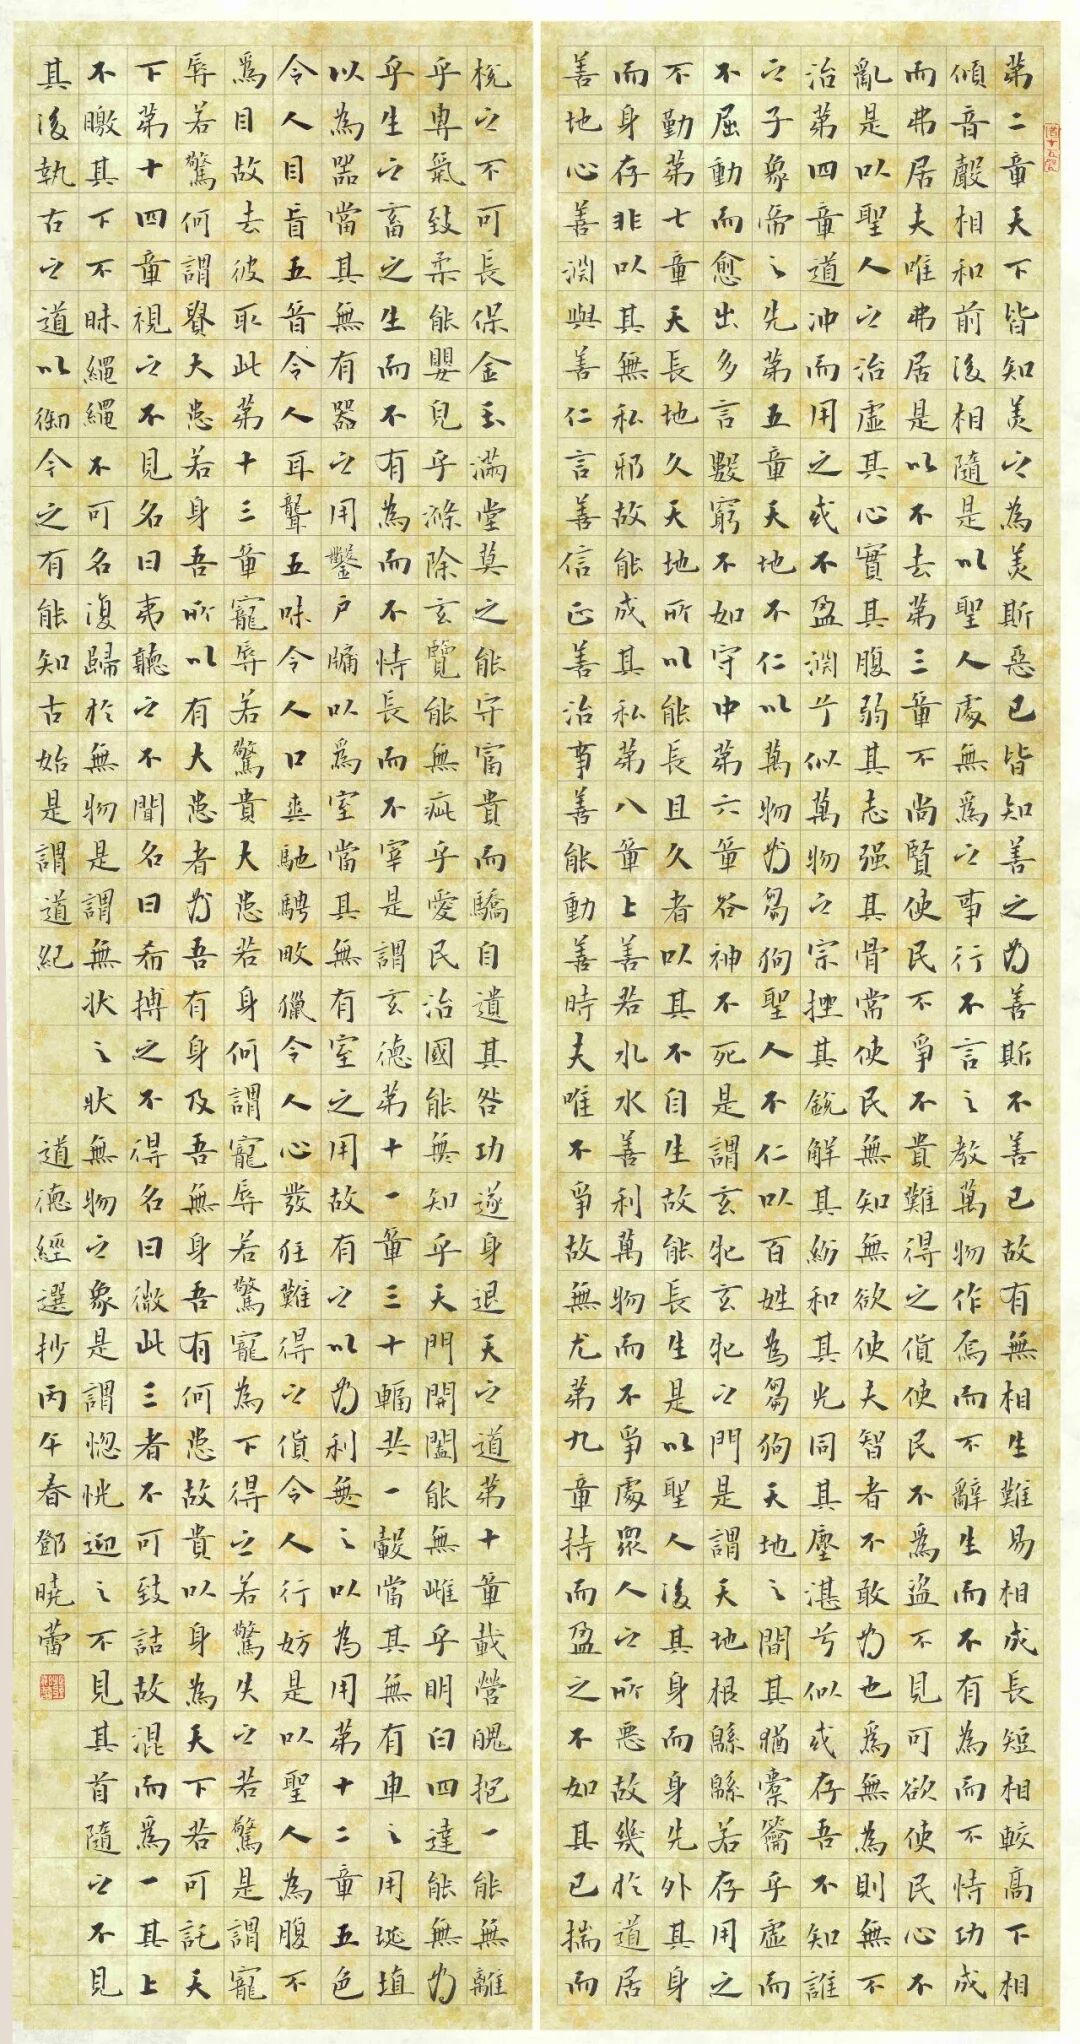 第二章天下皆知美之為美斯惡已皆知善之為善斯不善已故有無相生難易相成長短相較高下相
傾音聲相和前後相隨是以聖人處無為之事行不言之教萬物作焉而不辭生而不有為而不恃功成
而弗居夫唯弗居是以不去第三章不尚賢使民不爭不貴難得之貨使民不為盜不見可欲使民心不
亂是以聖人之治虛其心實其腹弱其志强其骨常使民無知無欲使夫智者不敢為也為無為則無不
治第四章道沖而用之或不盈淵兮似萬物之宗挫其銳解其紛和其光同其塵湛兮似或存吾不知誰
之子象帝之先第五章天地不仁以萬物為芻狗聖人不仁以百姓為芻狗天地之間其猶橐籥乎虛而
不屈動而愈出多言數窮不如守中第六章谷神不死是謂玄牝玄牝之門是謂天地根緜緜若存用之
不勤第七章天長地久天地所以能長且久者以其不自生故能長生是以聖人後其身而身先外其身
而身存非以其無私邪故能成其私第八章上善若水水善利萬物而不爭處眾人之所惡故幾於道居
善地心善淵與善仁言善信正善治事善能動善時夫唯不爭故無尤第九章持而盈之不如其已揣而
梲之不可長保金玉滿堂莫之能守富貴而驕自遺其咎功遂身退天之道第十章載營魄抱一能無離
乎專氣致柔能嬰兒乎滌除玄覽能無疵乎愛民治國能無知乎天門開闔能無雌乎明白四達能無為
乎生之畜之生而不有為而不恃長而不宰是謂玄德第十一章三十輻共一轂當其無有車之用埏埴
以為器當其無有器之用鑿戶牖以為室當其無有室之用故有之以為利無之以為用第十二章五色
令人目盲五音令人耳聾五味令人口爽馳騁畋獵令人心發狂難得之貨令人行妨是以聖人為腹不
為目故去彼取此第十三章寵辱若驚貴大患若身何謂寵辱若驚寵為下得之若驚失之若驚是謂寵
辱若驚何謂貴大患若身吾所以有大患者為吾有身及吾無身吾有何患故貴以身為天下若可託天
下第十四章視之不見名曰夷聽之不聞名曰希搏之不得名曰微此三者不可致詰故混而為一其上
不皦其下不昧繩繩不可名復歸於無物是謂無狀之狀無物之象是謂惚恍迎之不見其首隨之不見
其後執古之道以御今之有能知古始是謂道紀 道德經選抄丙午春鄧曉蕾